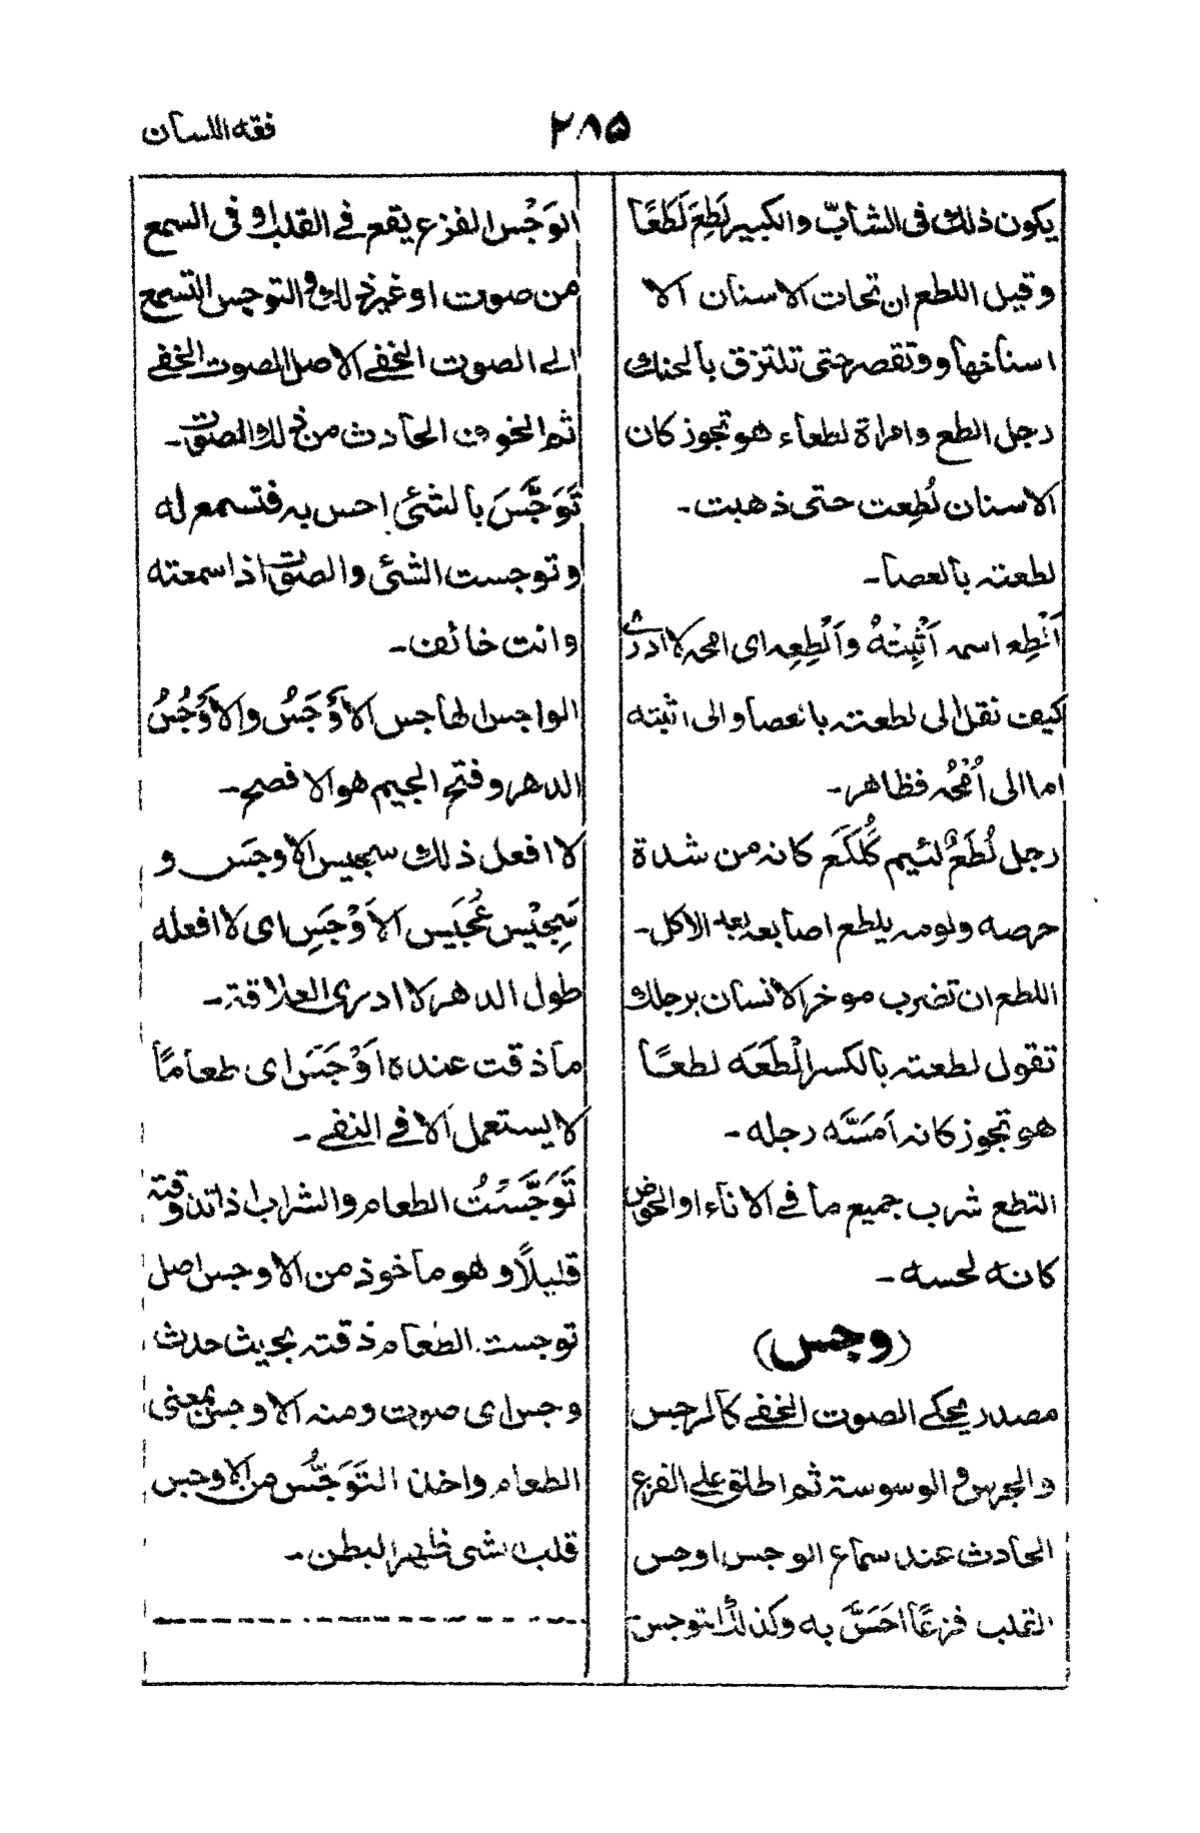 فقه اللسان
٢٨٥
يكون ذلك فى الشابّ والكبير لَطِعَ لَطَعًا
وقيل اللطع ان تحات الاسنان الا
اسناخها و تقصر حتى تلتزق بالحنك
رجل الطع وامراة لطعاء هو تجوز كان
الاسنان لُطِعت حتى ذهبت۔
لطعته بالعصا۔
اَلْطِع اسمه اَثْبِتْهُ و اَلْطِعِه اى امحه لا ادرى
كيف نقل الى لطعته بالعصا والى اثبته
اما الى اُمْحُه فظاهر۔
رجل لُطَعٌ لئيم كَلُكَع كانه من شدة
حرصه ولومه يلطع اصابعه بعد الاكل۔
اللطع ان تضرب موخر الانسان برجلك
تقول لطعته بالكسر اَلْطَعَه لطعًا
هو تجوز كانه اَمَسَّه رجله۔
التطع شرب جميع ما فى الاناء او الحوض
كانه لحسه۔
(وجس)
مصدر يحكى الصوت الخفى كالرجس
والجرس والوسوسة ثم اطلق على الفزع
الحادث عند سماع الوجس اوجس
القلب فزعًا احَسَّ به وكذلك توجس
الوَجْس الفزع يقع فى القلب او فى السمع
من صوت او غير ذلك والتوجس التسمع
الى الصوت الخفى الاصل الصوت الخفى
ثم الخوف الحادث من ذلك الصوت۔
تَوَجَّسَ بالشئ احس به فتسمع له
وتوجست الشئ والصوت اذا سمعته
وانت خائف۔
الواجس الهاجس الاَوْجَسُ والاَوْجُسُ
الدهر وفتح الجيم هو الافصح۔
لا افعل ذلك سجيس الاوجَس و
سَجِيْس عُجَيْس الاَوْجَسِ اى لا افعله
طول الدهر لا ادرى العلاقة۔
ما ذقت عنده اَوْجَسَ اى طعامًا
لا يستعمل الا فى النفى۔
تَوَجَّسْتُ الطعام والشراب اذا تذوقته
قليلًا وهو ماخوذ من الاوجس اصل
توجست الطعام ذقته بحيث حدث
وجس اى صوت ومنه الاوجس بمعنى
الطعام واخذ التَوَجُّس من الاوجس
قلب شى ظهر البطن۔